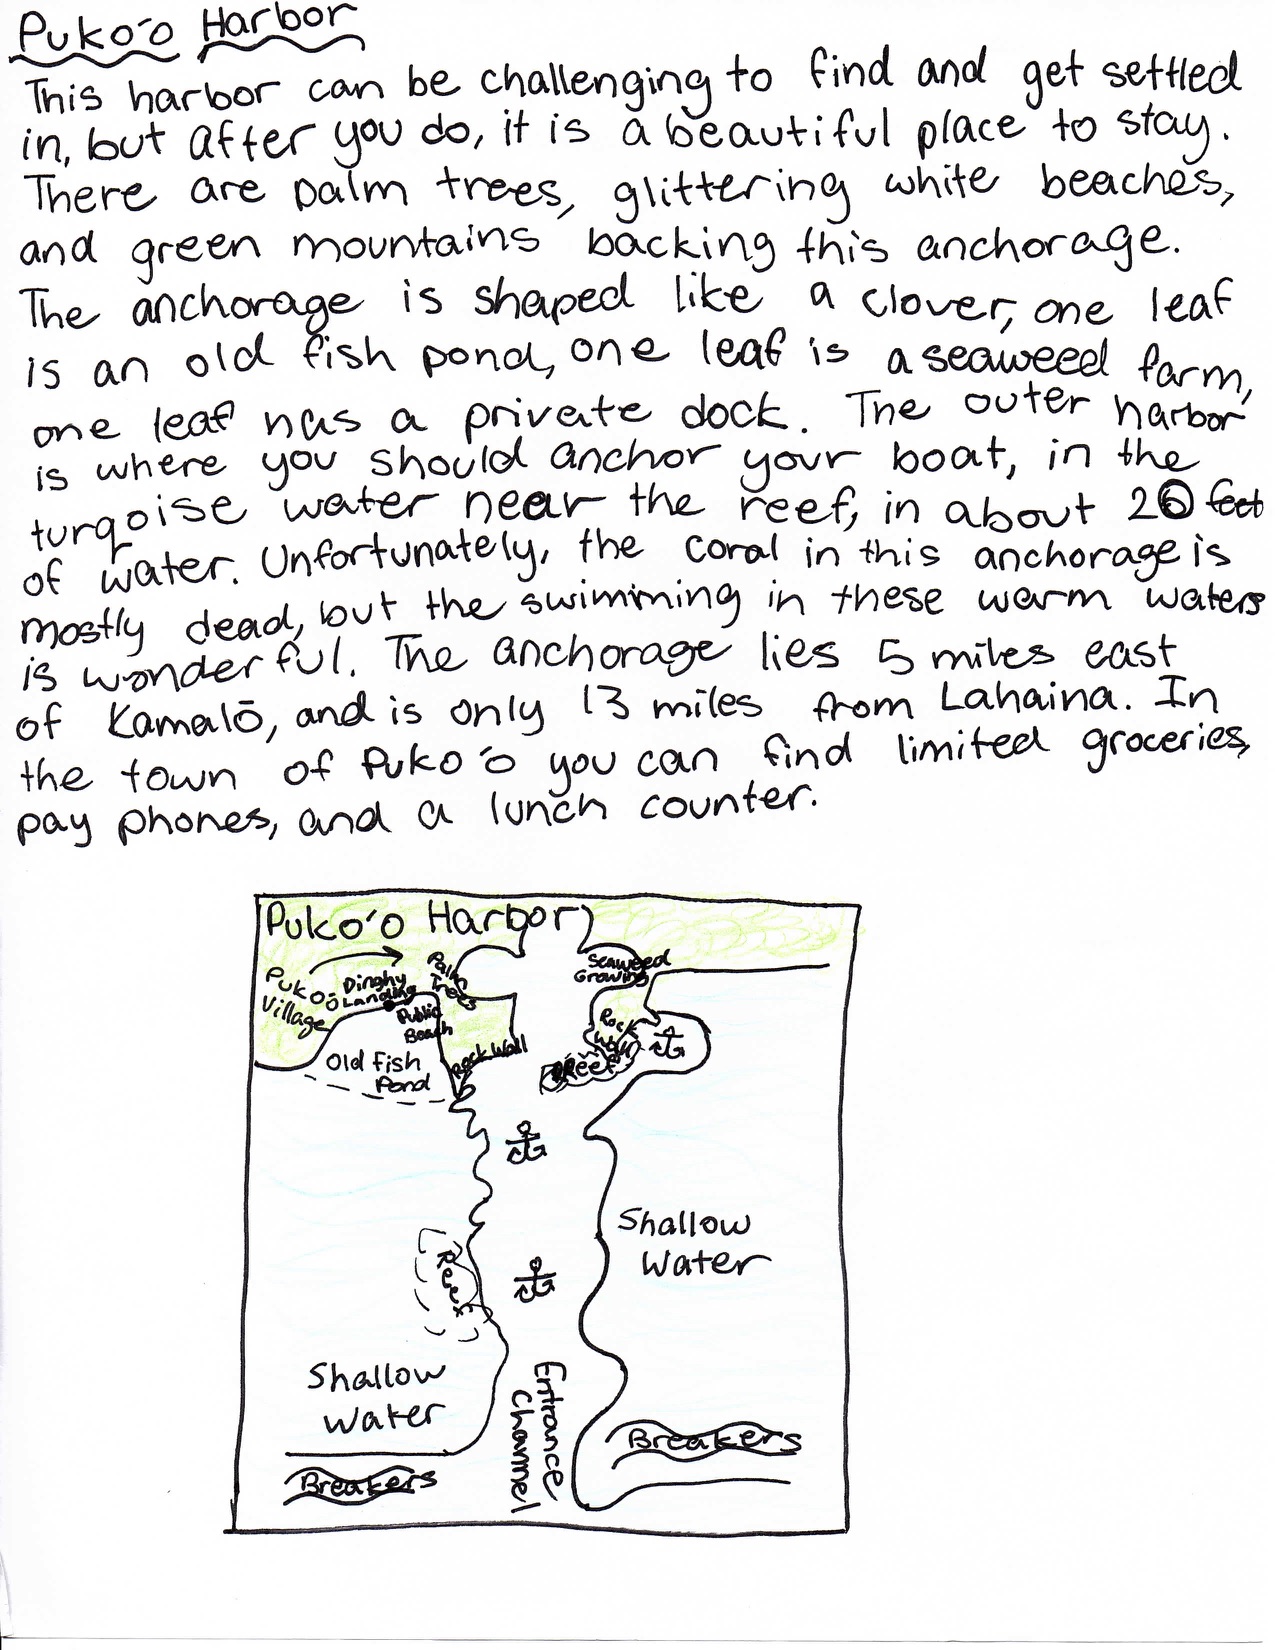 Puko'o Harbor
This harbor can be challenging to find and get settled
in, but after you do, it is a beautiful place to stay.
There are palm trees, glittering white beaches,
and green mountains backing this anchorage.
The anchorage is shaped like a clover, one leaf
is an old fish pond, one leaf is a seaweed farm,
one leaf has a private dock. The outer harbor
is where you should anchor your boat, in the
turqoise water near the reef, in about 20 feet
of water. Unfortunately, the coral in this anchorage is
mostly dead, but the swimming in these warm waters
is wonderful. The anchorage lies 5 miles east
of Kamalō, and is only 13 miles from Lahaina. In
the town of Puko'o you can find limited groceries,
pay phones, and a lunch counter.
Puko'o Harbor
Pukoō
Village
Dinghy
Landing
Palm
Trees
Public
Beach
Seaweed
Growing
Rock
Wall
Rock Wall
Reef
Old Fish
Pond
Reef
Shallow
Water
Shallow
Water
Entrance
Channel
Breakers
Breakers